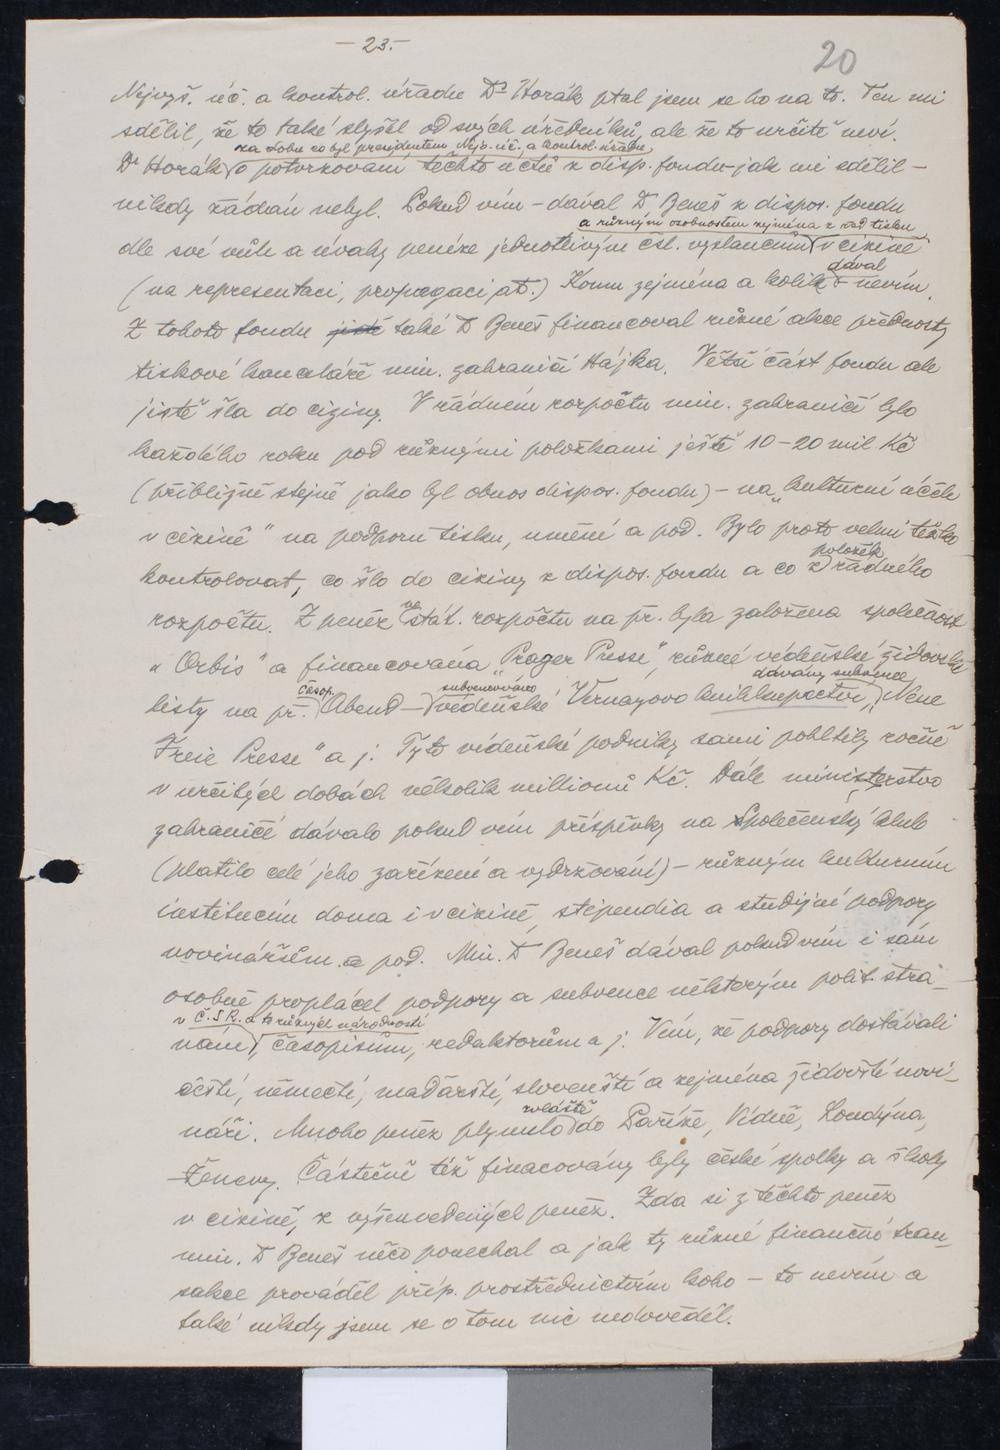 – 23. –
20
Nejvyš. úč. a kontrol. úřadu Dr Horák ptal jsem se ho na to. Ten mi
sdělil, že to také slyšel od svých úředníků, ale že to určitě neví.
za dobu co byl presidentem Nejv. úč. a kontrol. úřadu
Dr Horák o potvrzování těchto účtů z disp. fondu – jak mi sdělil –
nikdy žádán nebyl. Pokud vím – dával Dr Beneš z dispos. fondu
a různým osobnostem zejména z řad tisku
dle své vůle a úvahy peníze jednotlivým čsl. vyslancům v cizině
dával
(na representaci, propagaci atd.) Komu zejména a kolik nevím.
Z tohoto fondu jistě také Dr Beneš financoval různé akce přednosty
tiskové kanceláře min. zahraničí Hájka. Větší část fondu ale
jistě šla do ciziny. V řádném rozpočtu min. zahraničí bylo
každého roku pod různými položkami ještě 10–20 mil. Kč
(přibližně stejně jako byl obnos dispos. fondu) – na „kulturní účele
v cizině“ na podporu tisku, umění a pod. Bylo proto velmi těžko
položek
kontrolovat, co šlo do ciziny z dispos. fondu a co z řádného
rozpočtu. Z peněz ze stát. rozpočtu na př. byla založena společnost
„Orbis“ a financována „Prager Presse“, různé vídeňské židovské
časop. subvencováno dávány subvence
listy na př. Abend – vídeňské Vernayovo knihkupectví, „Neue
Freie Presse“ a j. Tyto vídeňské podniky sami pohltily ročně
v určitých dobách několik millionů Kč. Dále ministerstvo
zahraničí dávalo pokud vím příspěvky na Společenský klub
(platilo celé jeho zařízení a vydržování) – různým kulturním
institucím doma i v cizině, stipendia a studijní podpory
novinářům a pod. Min. Dr Beneš dával pokud vím i sám
osobně proplácel podpory a subvence některým polit. stra-
v Č.S.R. a to různých národností
nám, časopisům, redaktorům a j. Vím, že podpory dostávali
čeští, němečtí, maďarští, slovenští a zejména židovští novi-
zvláště
náři. Mnoho peněz plynulo do Paříže, Vídně, Londýna,
Ženevy. Částečně též finacovány byly české spolky a školy
v cizině, z výšeuvedených peněz. Zda si z těchto peněz
min. Dr Beneš něco ponechal a jak ty různé finanční tran-
sakce prováděl příp. prostřednictvím koho – to nevím a
také nikdy jsem se o tom nic nedověděl.